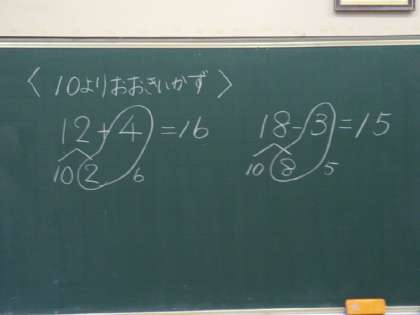 〈10よりおおきいかず〉
12+4=16 18-3=15
10 2 6 10 8 5